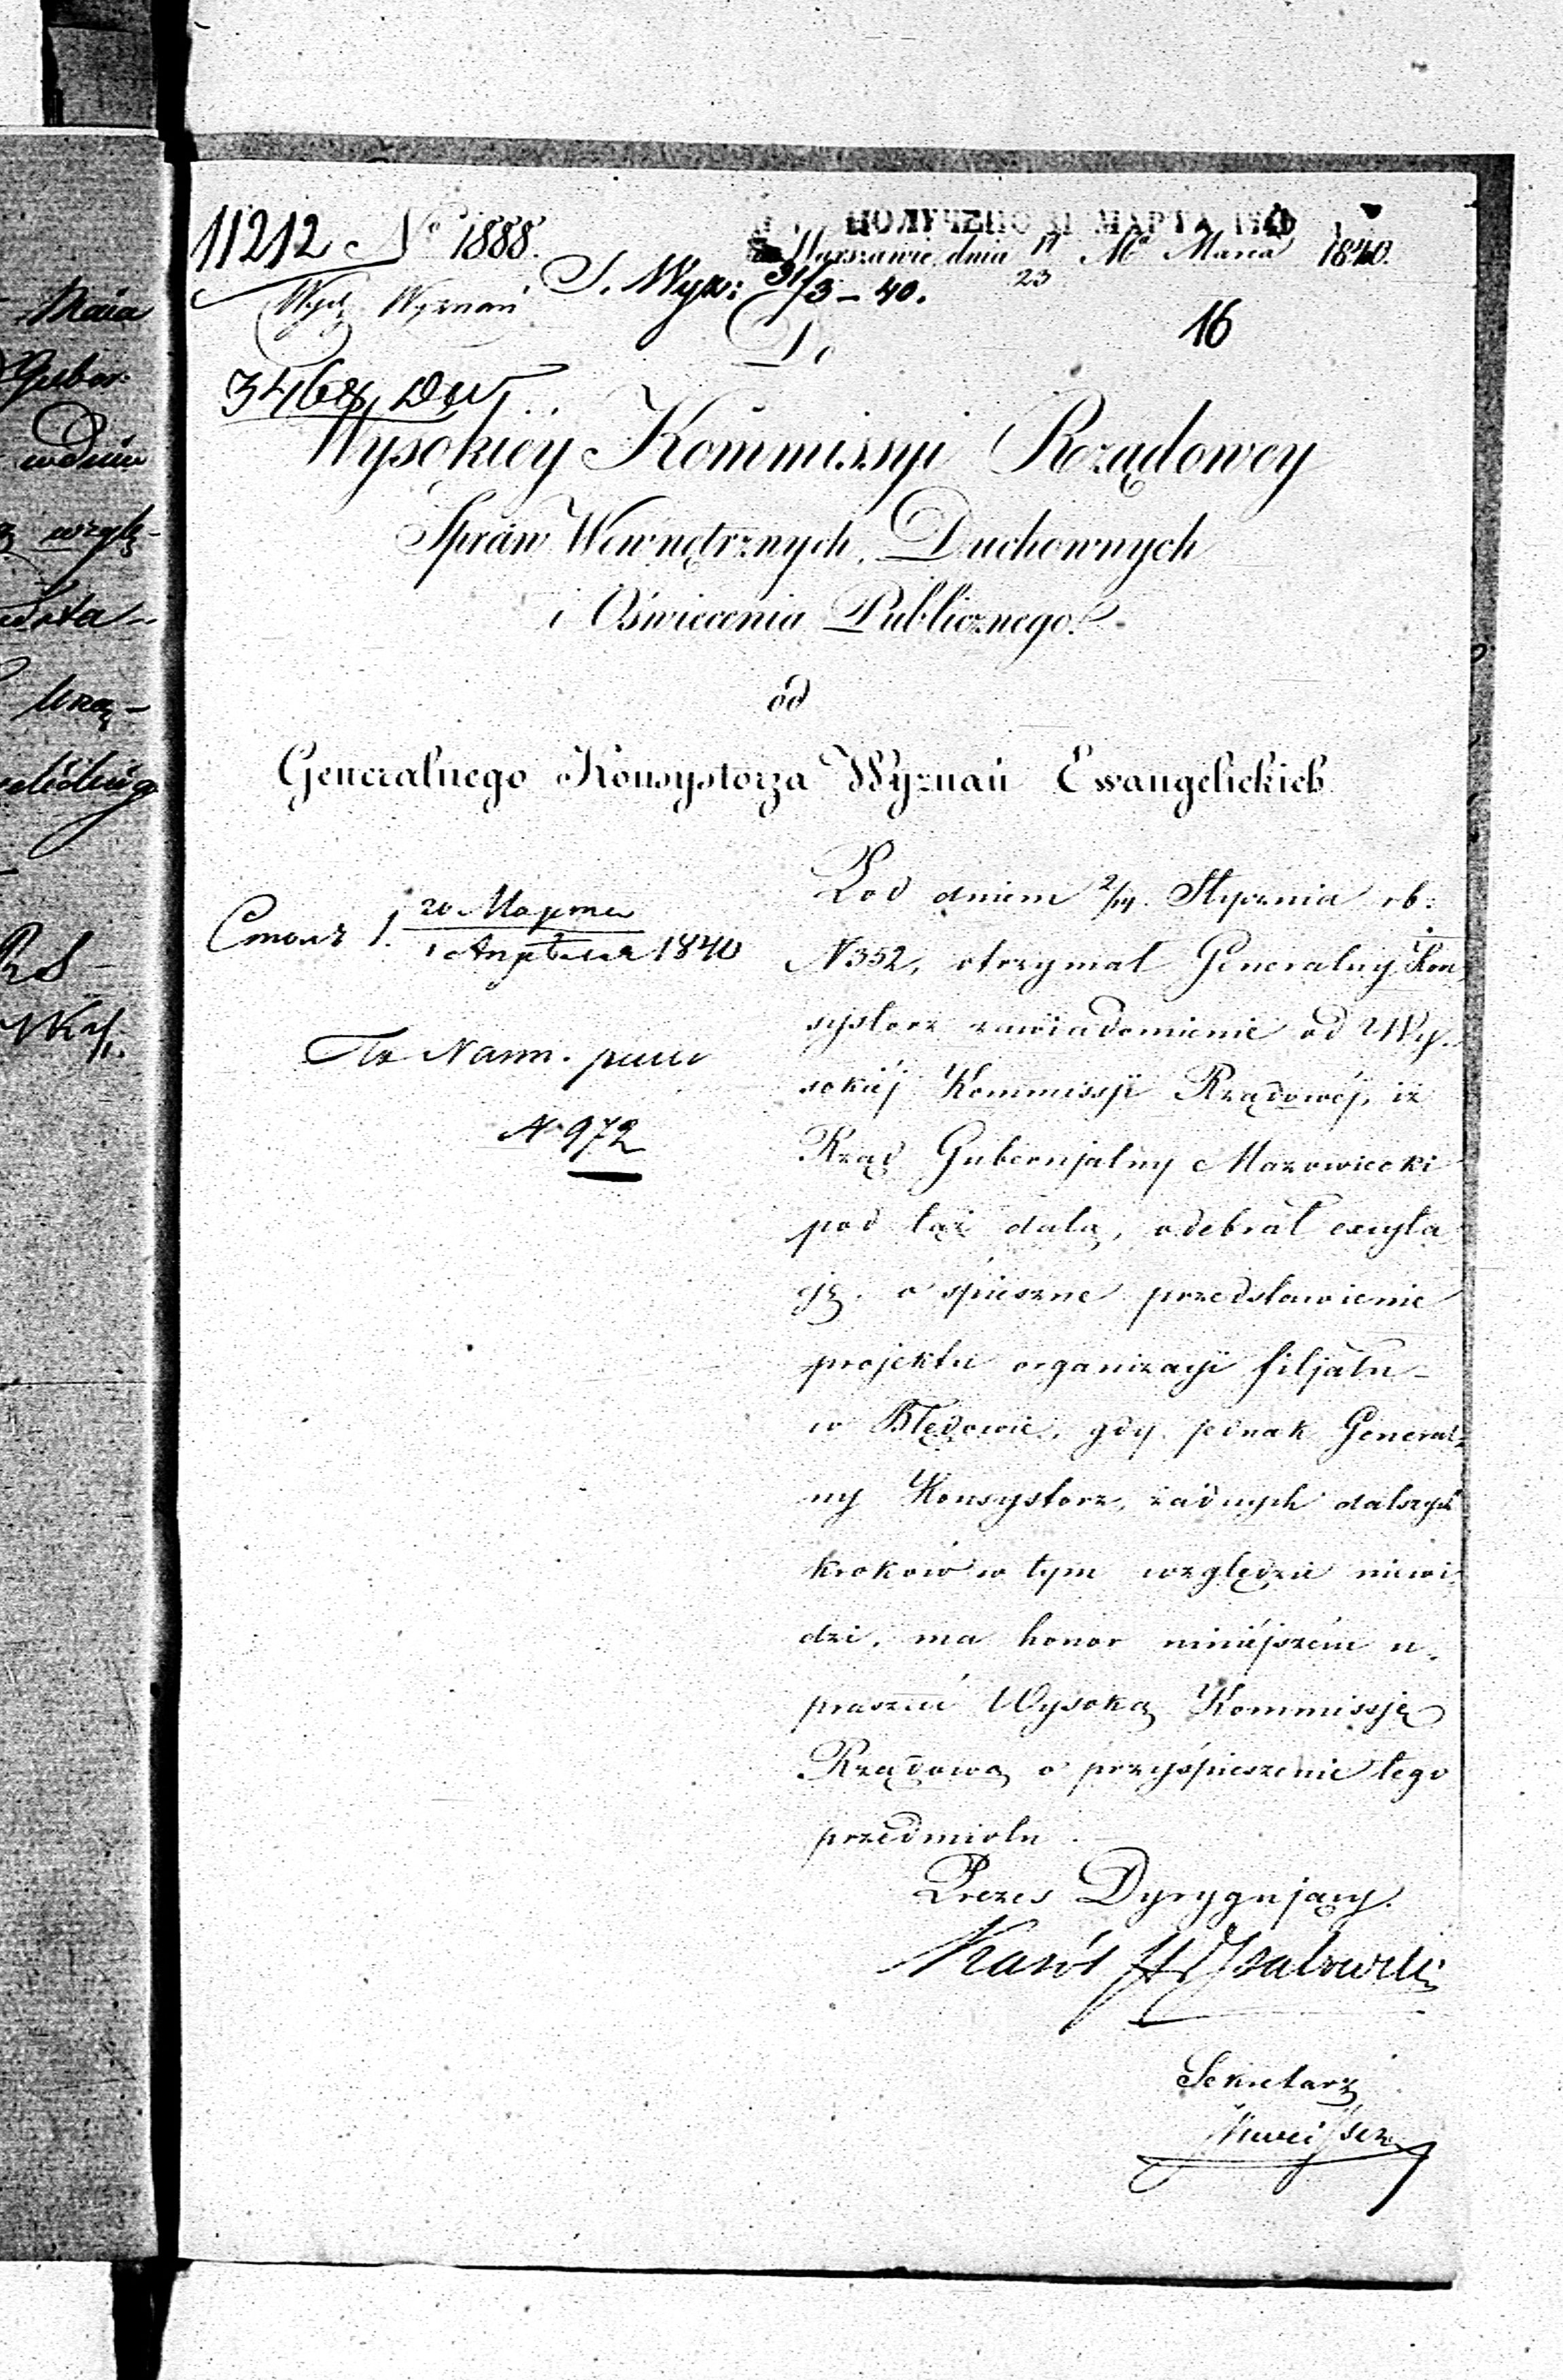 Maia
Guber:
wdniu
wzglę-
11212 No 1888.
ПОЛУЧЕНО 31 МАРТА 1840
Warszawie, dnia 11/23 Marca 1840.
Wydz. Wyznań
S. Wyzn: 31/3 – 40.
16
Do
3468, DW
Wysokiey Kommissyi Rządowey
Spraw Wewnętrznych, Duchownych
i Oświecenia Publicznego.
od
Generalnego Konsystorza Wyznań Ewangelickich
20 Марта
1 Апреля 1840
No 972
Pod dniem 2/14. Stycznia rb:
N 352, otrzymał Generalny Kon
systorz zawiadomienie od Wy-
sokiéj Kommissji Rządowéj, iż
Rząd Gubernjalny Mazowiecki
pod taż datą, odebrał excyta
cję o śpieszne przedstawienie
projektu organizacji filjału
w Błędowie, gdy jednak General-
ny Konsystorz, żadnych dalszych
kroków w tym względzie niewi-
dzi, ma honor niniéjszém u-
praszać Wysoką Kommissję
Rządową o przyśpieszenie tego
przedmiotu.
Prezes Dyrygujący.
Sekretarz